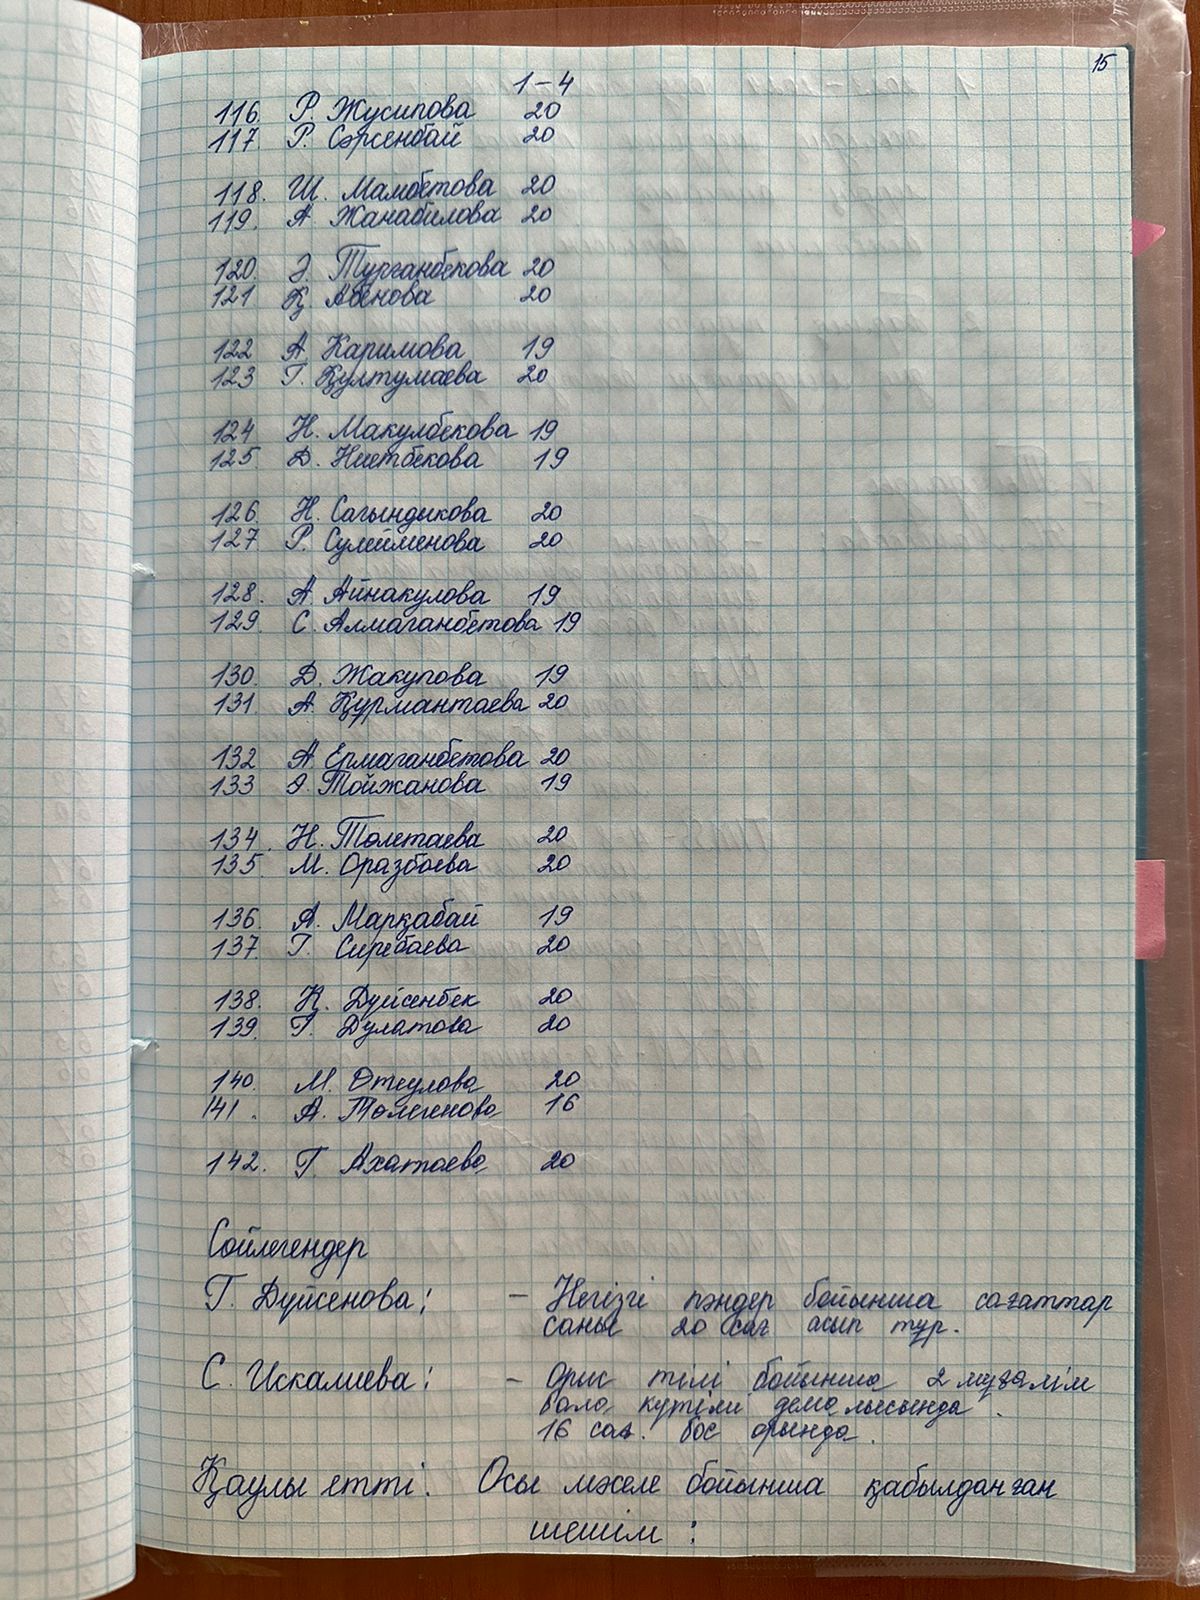 15
1-4
116. Р. Жусипова 20
117. Р. Сәрсенбай 20
118. Ш. Мамбетова 20
119. А Жанабилова 20
120. Ә. Турганбекова 20
121 Қ Абенова 20
122 А Каримова 19
123 Г. Құлтумаева 20
124 Н. Макулбекова 19
125. Д. Ниетбекова 19
126. Н. Сагындыкова 20
127 Р. Сулейменова 20
128. А. Айнакулова 19
129. С. Алмаганбетова 19
130. Д. Жакупова 19
131. А. Құрмантаева 20
132 А Ермаганбетова 20
133 Ә. Тойжанова 19
134. Н. Төлетаева 20
135. М. Оразбаева 20
136. А. Марқабай 19
137. Г. Сиребаева 20
138. Қ. Дүйсенбек 20
139. Г. Дулатова 20
140. М. Өтеулова 20
141. А. Төлегенова 16
142. Г. Ахатаева 20
Сөйлегендер
Г. Дүйсенова: - Негізгі пәндер бойынша сағаттар
саны 20 сағ асып тұр.
С. Искалиева: - Орыс тілі бойынша 2 мұғалім
бала күтімі демалысында.
16 сағ. бос орында.
Қаулы етті. Осы мәселе бойынша қабылданған
шешім: